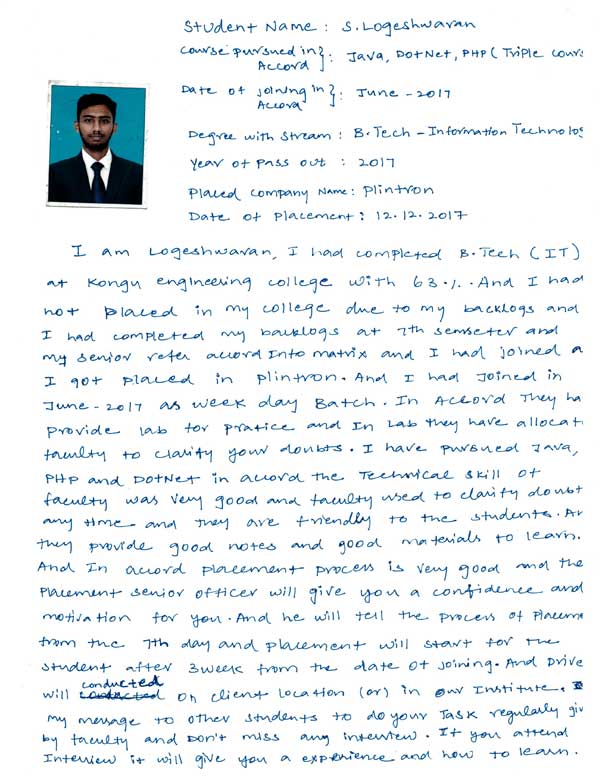 Student Name : S. Logeshwaran
Course pursued in Accord } : Java, DotNet, PHP ( Triple Cours
Date of joining in Accord } : June - 2017
Degree with Stream : B.Tech - Information Technolog
Year of Pass out : 2017
Placed Company Name : Plintron
Date of Placement : 12.12.2017
I am Logeshwaran, I had completed B.Tech ( IT )
at Kongu engineering college with 63 %. And I had
not placed in my college due to my backlogs and
I had completed my backlogs at 7th semseter and
my senior refer accord Into matrix and I had joined a
I got placed in Plintron. And I had Joined in
June - 2017 as week day Batch. In Accord They ha
Provide lab for pratice and In Lab they have allocat
faculty to clarify your doubts. I have pursued Java,
PHP and DotNet in accord the Technical Skill of
faculty was very good and faculty used to clarify doubt
any time and they are friendly to the students. An
they provide good notes and good materials to learn.
And In accord placement process is very good and the
Placement senior officer will give you a confidence and
motivation for you. And he will tell the process of Placeme
from the 7th day and placement will start for the
student after 3week from the date of joining. And Drive
will conducted on client location (or) in our Institute.
my message to other students to do your Task regularly giv
by faculty and Don't miss any interview. If you attend
Interview it will give you a experience and how to learn.